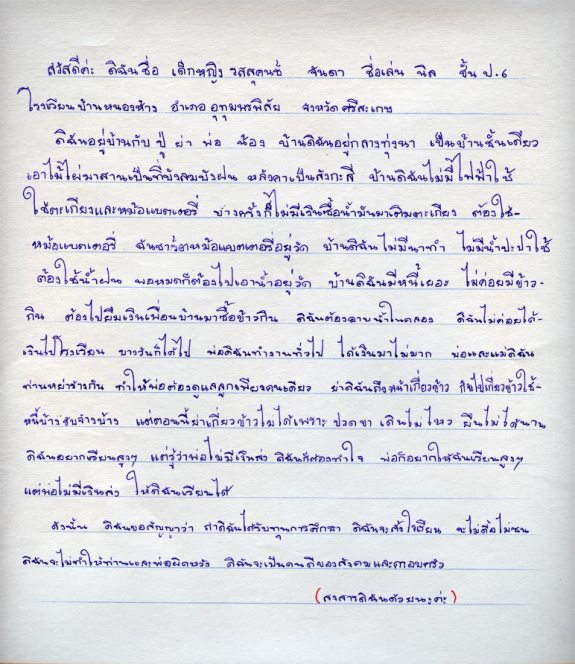 สวัสดีค่ะ ดิฉันชื่อ เด็กหญิง รสสุคนธ์ จันดา ชื่อเล่น นิล ชั้น ป.๖
โรงเรียนบ้านหนองห้าง อำเภออุทุมพรพิสัย จังหวัดศรีสะเกษ
ดิฉันอยู่บ้านกับ ปู่ ย่า พ่อ น้อง บ้านดิฉันอยู่กลางทุ่งนา เป็นบ้านชั้นเดียว
เอาไม้ไผ่มาสานเป็นที่บังลมบังฝน หลังคาเป็นสังกะสี บ้านดิฉันไม่มีไฟฟ้าใช้
ใช้ตะเกียงและหม้อแบตเตอรี่ บางครั้งก็ไม่มีเงินซื้อน้ำมันมาเติมตะเกียง ต้องใช้-
หม้อแบตเตอรี่ ฉันชาร์ตหม้อแบตเตอรี่อยู่วัด บ้านดิฉันไม่มีนาทำ ไม่มีน้ำปะปาใช้
ต้องใช้น้ำฝน พอหมดก็ต้องไปเอาน้ำอยู่วัด บ้านดิฉันมีหนี้เยอะ ไม่ค่อยมีข้าว-
กิน ต้องไปยืมเงินเพื่อนบ้านมาซื้อข้าวกิน ดิฉันต้องอาบน้ำในคลอง ดิฉันไม่ค่อยได้-
เงินไปโรงเรียน บางวันก็ได้ไป พ่อดิฉันทำงานทั่วไป ได้เงินมาไม่มาก พ่อและแม่ดิฉัน
ท่านหย่าร้างกัน ทำให้พ่อต้องดูแลลูกเพียงคนเดียว ย่าดิฉันถึงหน้าเกี่ยวข้าว ก็ไปเกี่ยวข้าวใช้-
หนี้บ้างรับจ้างบ้าง แต่ตอนนี้ย่าเกี่ยวข้าวไม่ได้เพราะ ปวดขา เดินไม่ไหว ยืนไม่ได้นาน
ดิฉันอยากเรียนสูงๆ แต่รู้ว่าพ่อไม่มีเงินส่ง ดิฉันก็ต้องทำใจ พ่อก็อยากให้ฉันเรียนสูงๆ
แต่พ่อไม่มีเงินส่ง ให้ดิฉันเรียนได้
ดังนั้น ดิฉันขอสัญญาว่า ถ้าดิฉันได้รับทุนการศึกษา ดิฉันจะตั้งใจเรียน จะไม่ดื้อไม่ซน
ดิฉันจะไม่ทำให้ท่านและพ่อผิดหวัง ดิฉันจะเป็นคนดีของสังคมและครอบครัว
(สงสารดิฉันด้วยนะค่ะ)